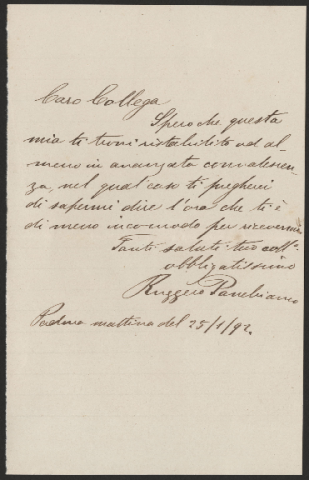 Caro Collega
Spero che questa
mia ti trovi ristabilito od al-
meno in avanzata convalescen-
za, nel qual caso ti pregherei
di sapermi dire l'ora che ti è
di meno incomodo per ricevermi
Tanti saluti tuo coll.
obbligatissimo
Ruggero Panebianco
Padova mattina del 25/1/92.